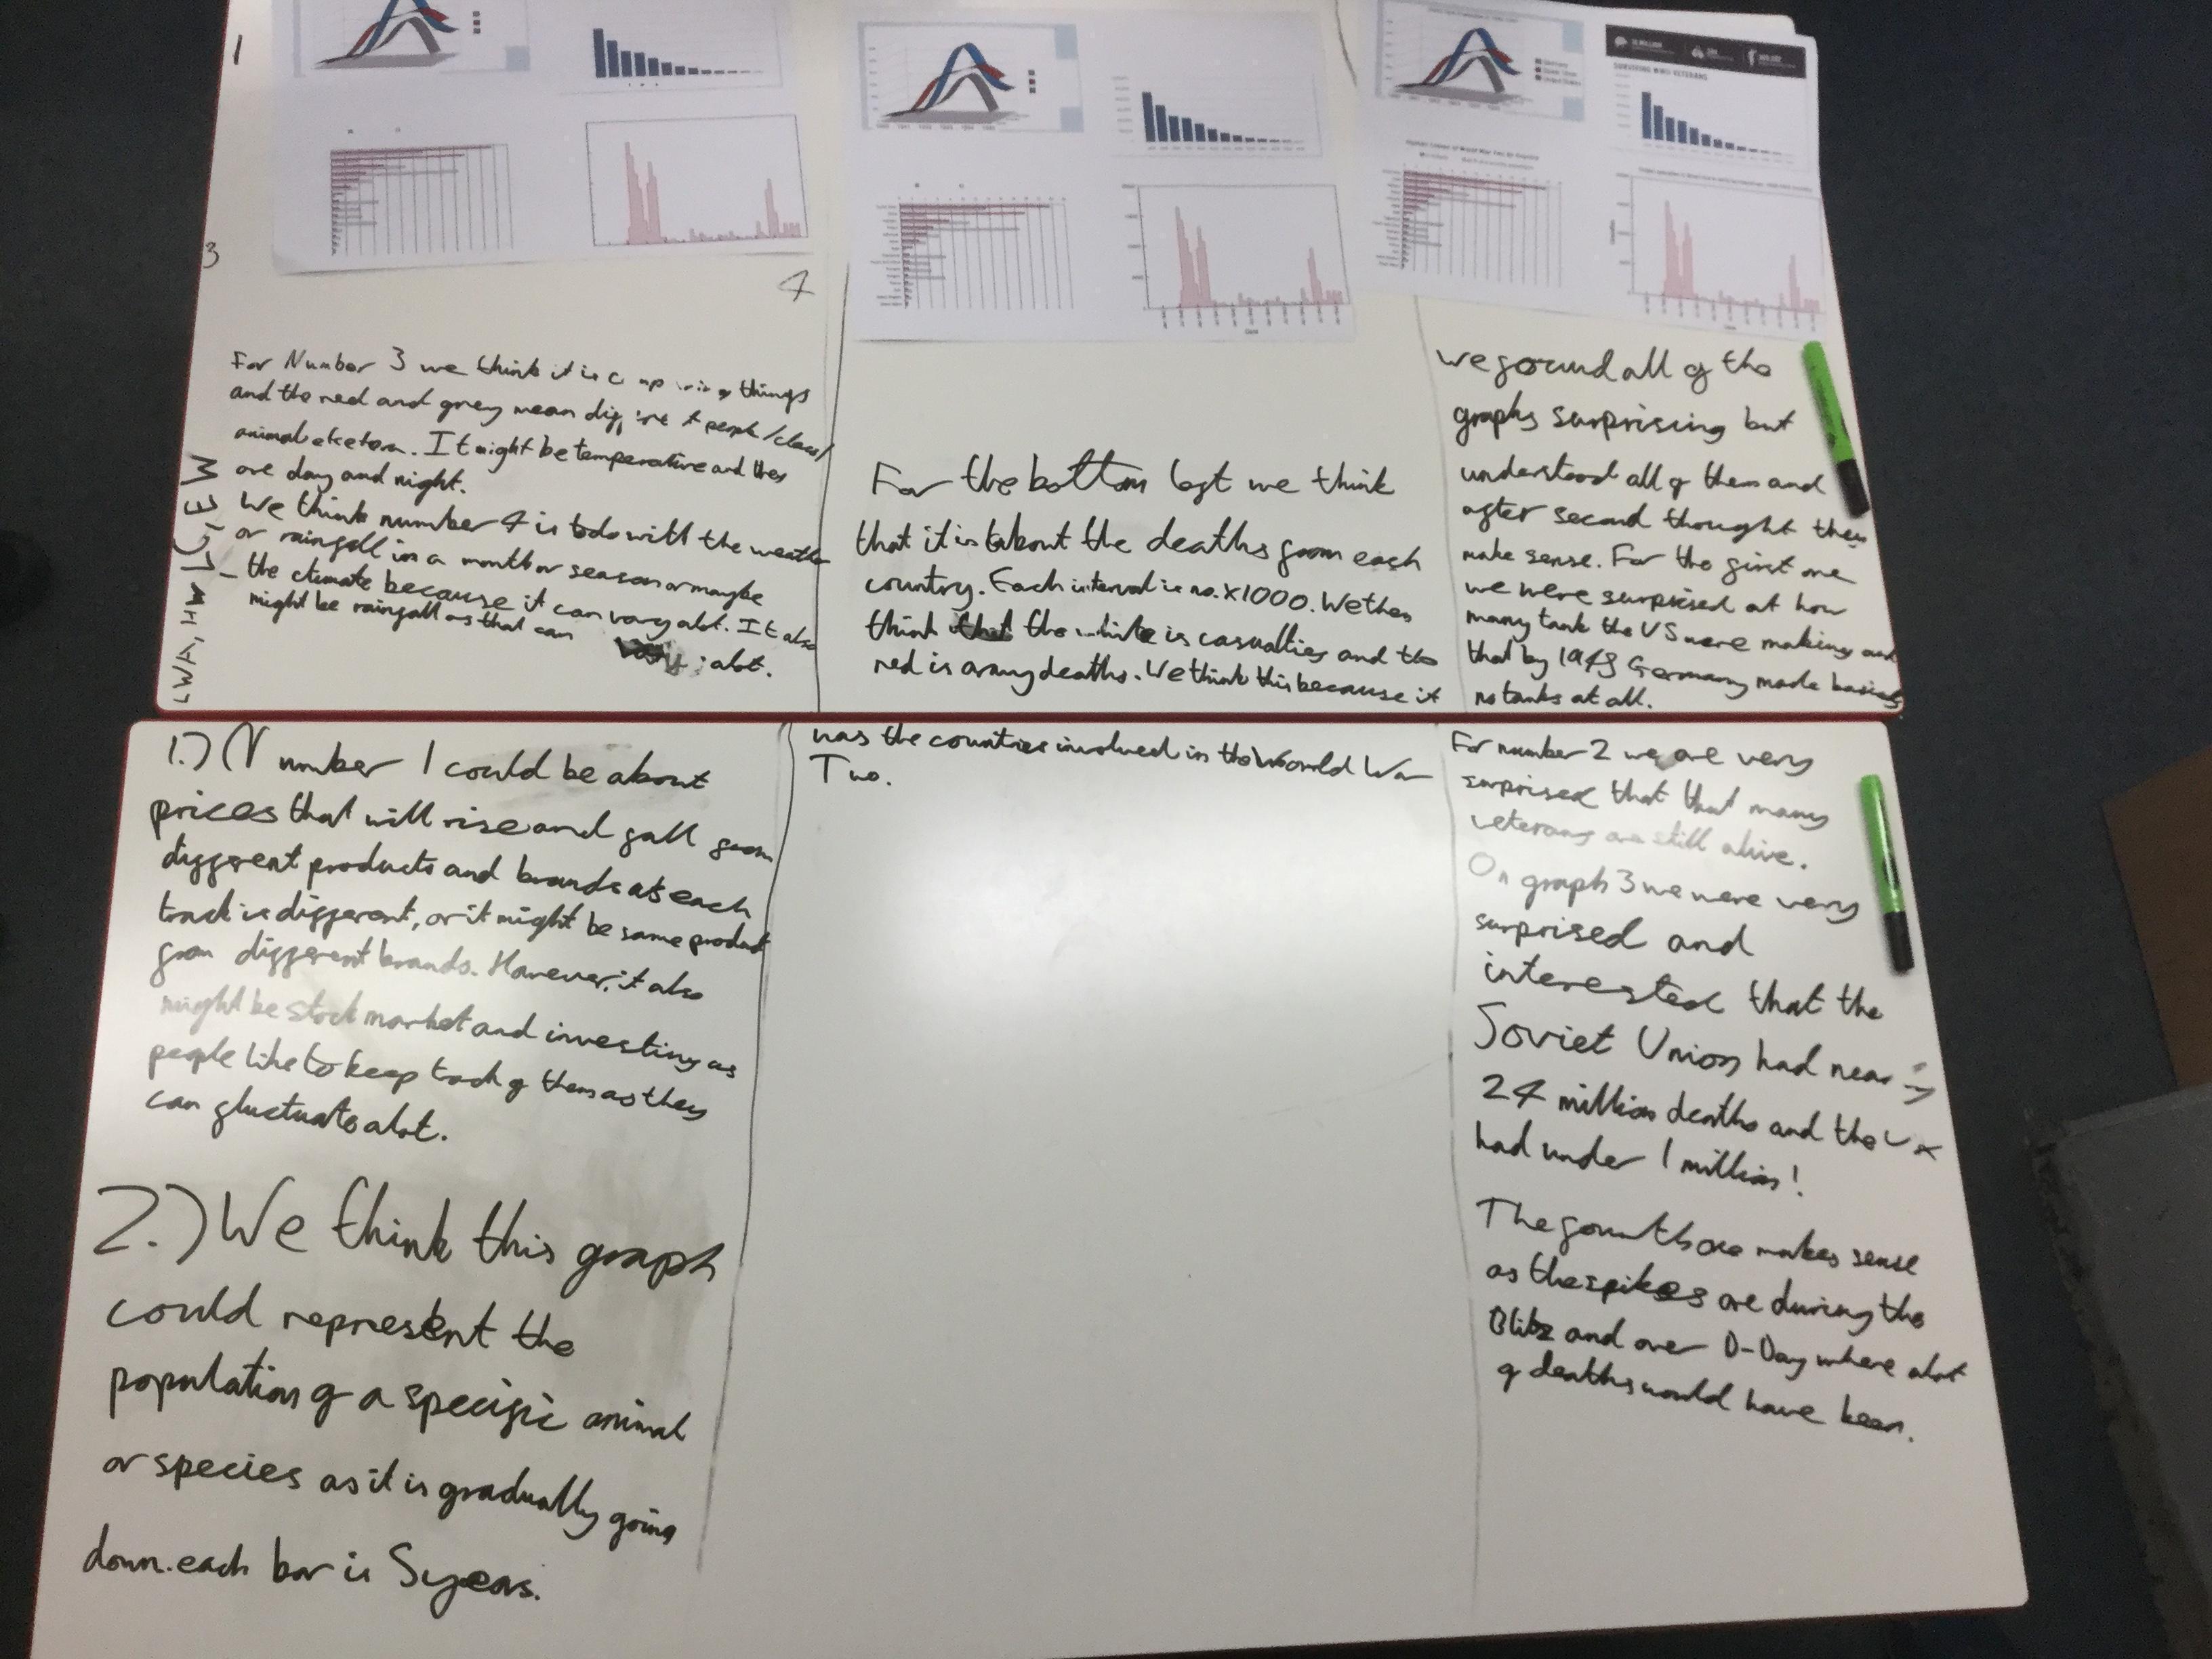 1
3
4
For Number 3 we think it is things
and the red and grey mean people/class/
animal etcetera. It might be temperature and they
are day and night.
We think number 4 is to do with the weather
or rainfall in a month or season or maybe
the climate because it can vary alot. It also
might be rainfall as that can
alot.
LWA, HW
1.) Number 1 could be about
prices that will rise and fall from
different products and brands as each
track is different, or it might be same product
from different brands. However, it also
might be stock market and investing as
people like to keep track of them as they
can fluctuate alot.
2.) We think this graph
could represent the
population of a specific animal
or species as it is gradually going
down. each bar is 5 years.
For the bottom left we think
that it is about the deaths from each
country. Each interval is no. x1000. We then
think that the white is casualties and the
red is army deaths. We think this because it
has the countries involved in the World War
Two.
SURVIVING WWII VETERANS
we found all of the
graphs surprising but
understood all of them and
after second thought they
make sense. For the first one
we were surprised at how
many tank the US were making and
that by 1945 Germany made
no tanks at all.
For number 2 we are very
surprised that that many
veterans are still alive.
On graph 3 we were very
surprised and
interested that the
Soviet Union had nearly
24 million deaths and the
had under 1 million!
The fourth one makes sense
as the spikes are during the
Blitz and over D-Day where alot
of deaths would have been.